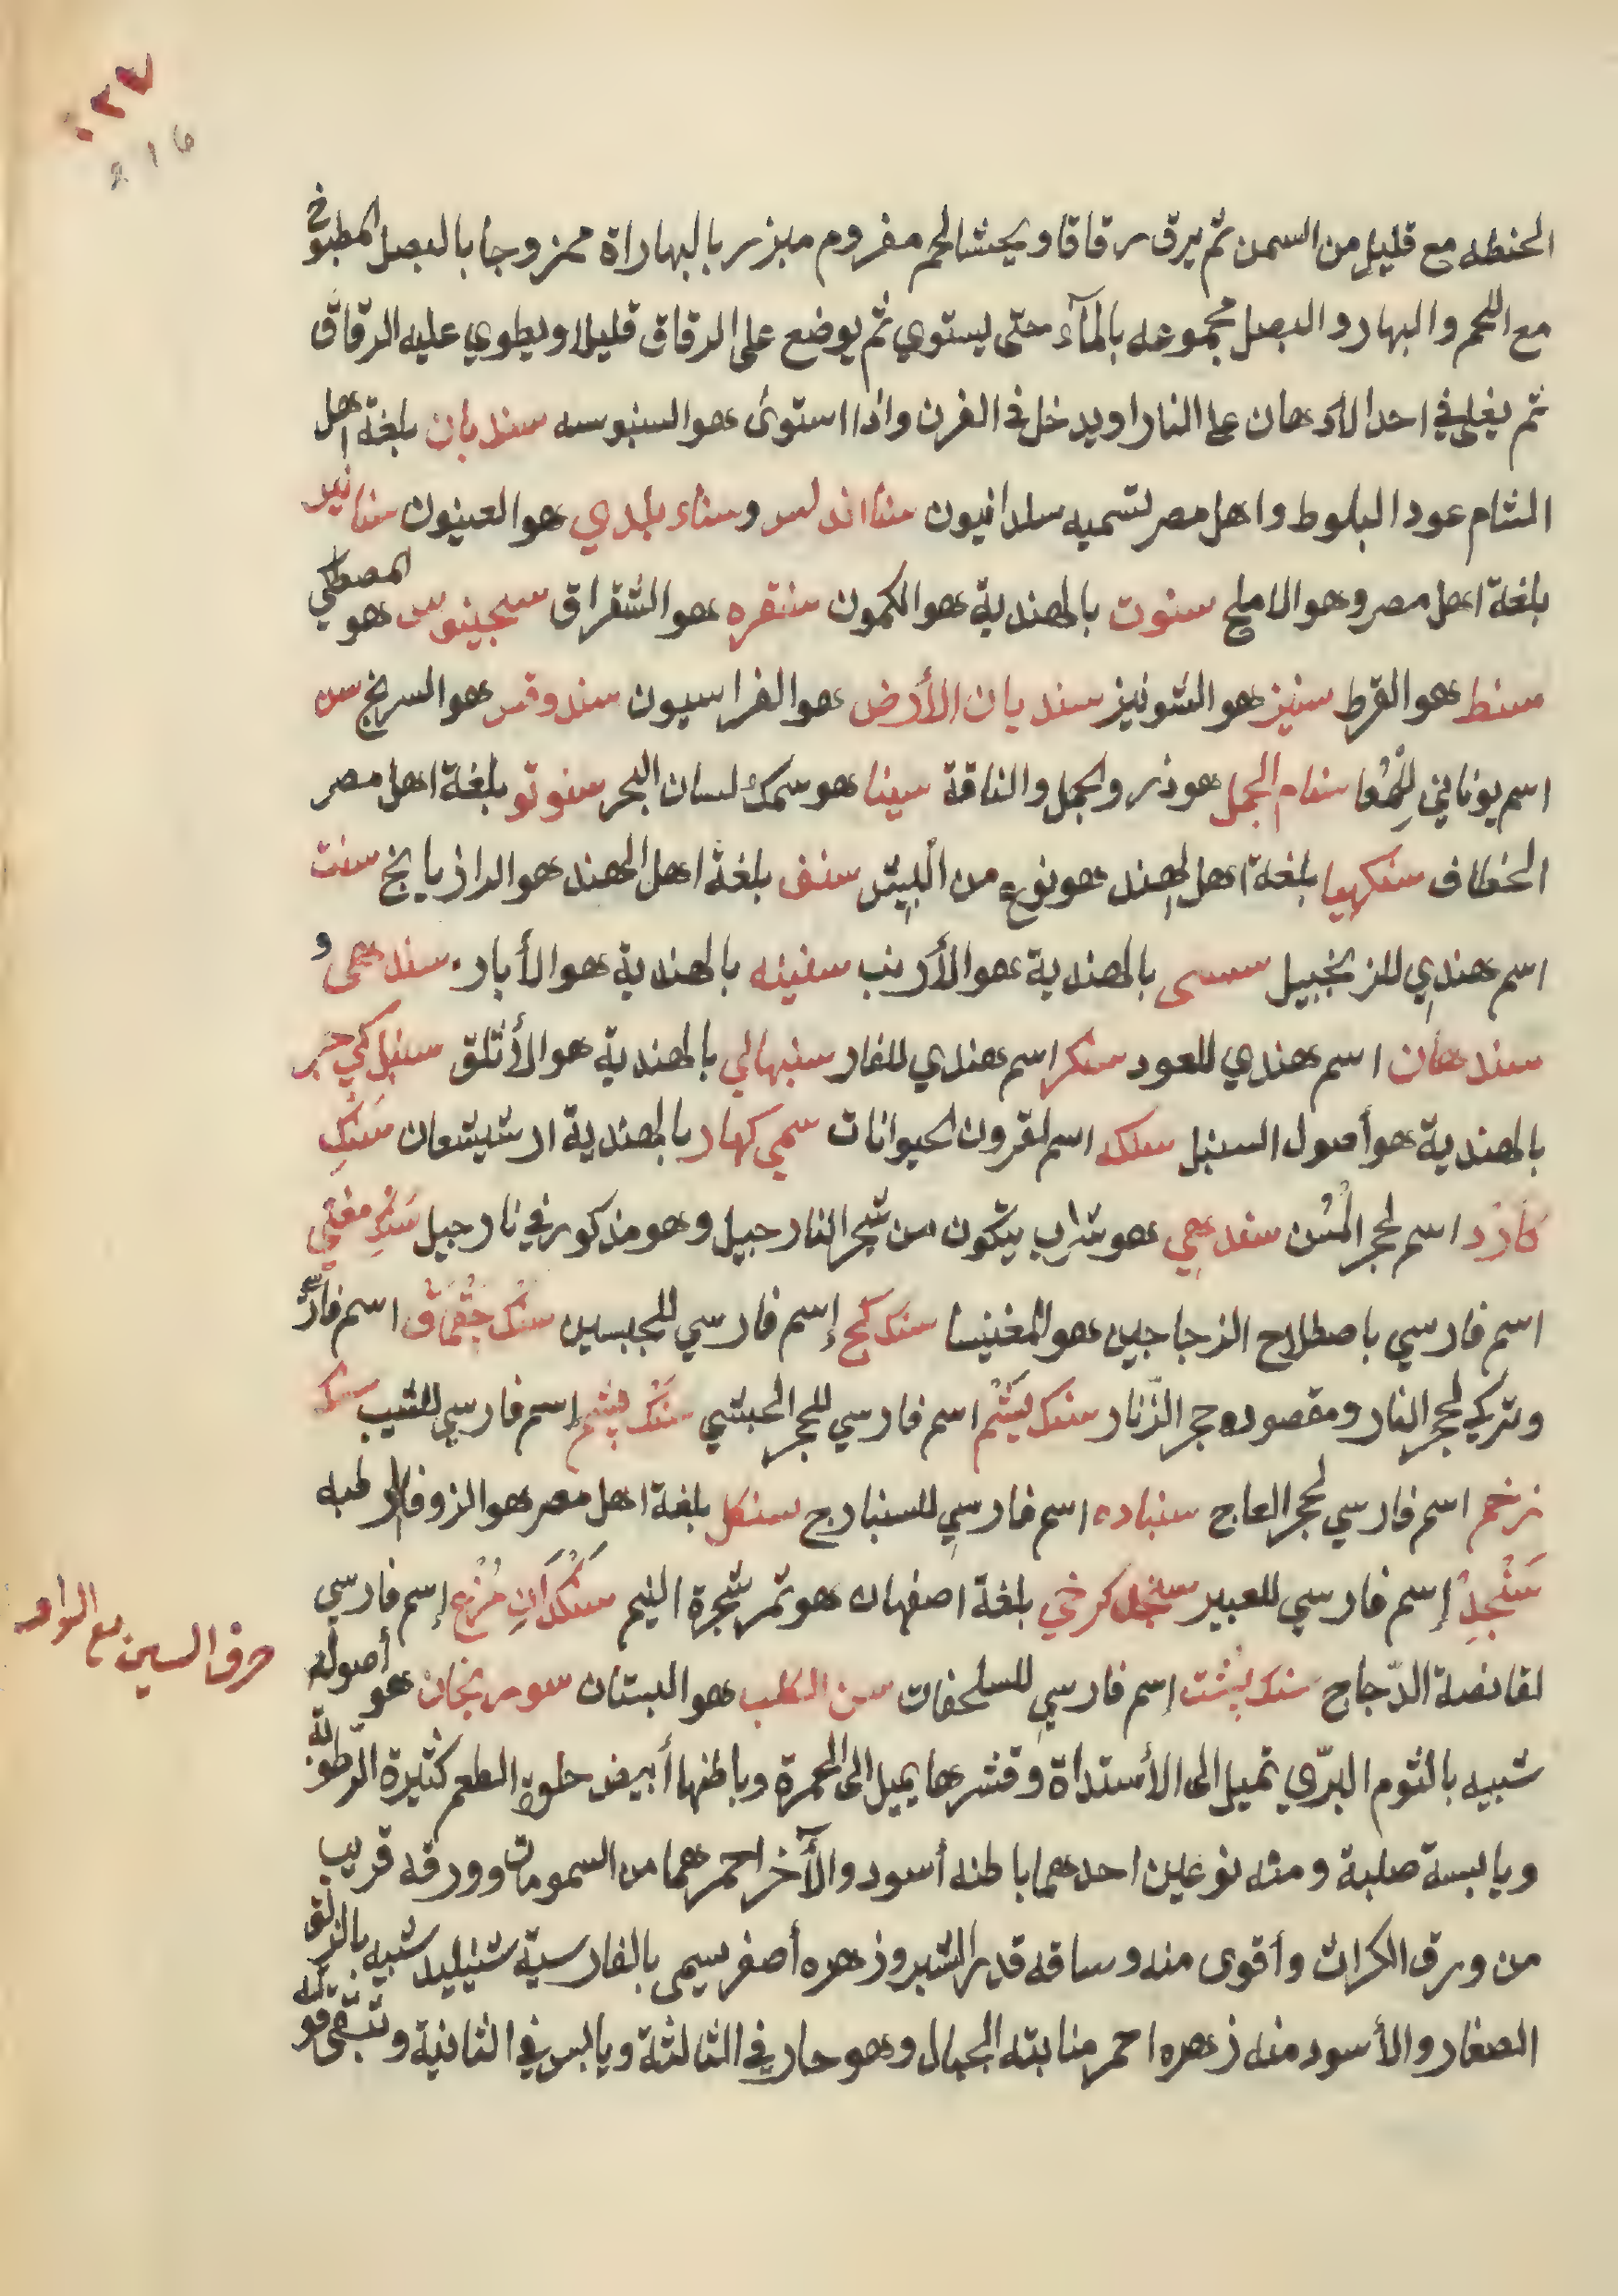 ٢٧٠
216
الحنطه مع قليل من السمن ثم يرق رقاقا ويحشا لحم مفروم مبزر بالبهاراة ممزوجا بالبصل المطبوخ
مع اللحم والبهار والبصل مجموعه بالمآء حتى يستوي ثم يوضع على الرقاق قليلا ويطوي عليه الرقاق
ثم يغلى في احد الأدهان على النار او يدخل في الفرن واذا استوى هو السنبوسه سنديان بلغة اهل
الشام عود البلوط واهل مصر تسميه سلدانيون سنا اندلس وسناء بلدي هو العينون سنانير
بلغة اهل مصر وهو الاملج سنوت بالهندية هو الكمون سنقره هو الشقراق سجينوس هو المصطكي
سنط هو القرط سنيز هو الشونيز سنديان الأرض هو الفراسيون سندوقس هو السريخ سن
اسم يوناني للهعا سنام الجمل هو ذروالجمل والناقة سينا هو سمك لسان البحر سنوتو بلغة اهل مصر
الخطاف سنكهيا بلغة اهل الهند هو نوع من البيش سنف بلغة اهل الهند هو الرازيابخ سنت
اسم هندي للزنجبيل سسى بالهندية هو الأرنب سفينه بالهندية هو الأبار سندهى و
سندهان اسم هندي للعود سنكر اسم هندي للفار سنبهالي بالهندية هو الأثلق سنبل كي جر
بالهندية هو أصول السنبل سلكه اسم لقرون الحيوانات سمي كهار بالهندية ارشيشعان سَنكِ
كارد اسم لحجر المُسن سندهي هو شراب يتكون من شجر النارجيل وهو مذكور في نارجيل سَنكِ مغني
اسم فارسي باصطلاح الزجاجين هو المغنيسا سنك كح إسم فارسي للجبسين سَنك جَقماق اسم فارسي
وتركي لحجر النار ومقصوده حجر الزّنار سنك يَشم اسم فارسي للحجر الحبشي سَنك پشم إسم فارسي للشيب سنك
زخم اسم فارسي لحجر العاج سنباده اسم فارسي للسنبادج سنكل بلغة اهل مصر هو الزوفا الرطبه
سَنْجِدْ إسم فارسي للعبير سنجد كرخي بلغة اصفهان هو ثمر شجرة النيم سَنكدَانِ مُرْغ إسم فارسي
لقانصة الدّجاج سنك پُشت إسم فارسي للسلحفات سن الكلب هو البستان سورنجان هو أصوله
حرف السين مع الواو
شبيه بالثوم البرّي تميل الى الأستداة وقشرها يميل الى الحمرة وباطنها أبيض حلوة الطعم كثيرة الرّطوبة
ويابسة صلبة ومنه نوعين احدهما باطنه أسود والآخر احمر هما من السمومات وورقه قريب
من ورق الكراث وأقوى منه وساقه قدر الشبر وزهره أصفر سيمى بالفارسية شنيليد شبيه بالزنبق
الصغار والأسود منه زهره احمر منابته الجبال وهو حار في الثالثة ويابس في الثانية وتبقى قوته